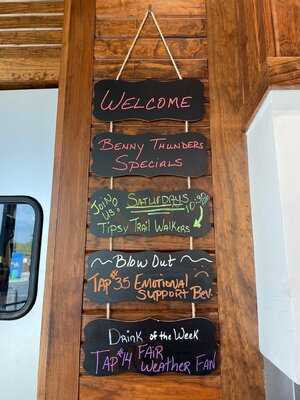 WELCOME
BENNY THUNDERS
SPECIALS
JOIN SATURDAYS 10:30
US!
TIPSY TRAIL WALKERS
BLOW OUT
TAP #35 EMOTIONAL
SUPPORT BEV.
DRINK OF THE WEEK
TAP #14 FAIR
WEATHER FAN